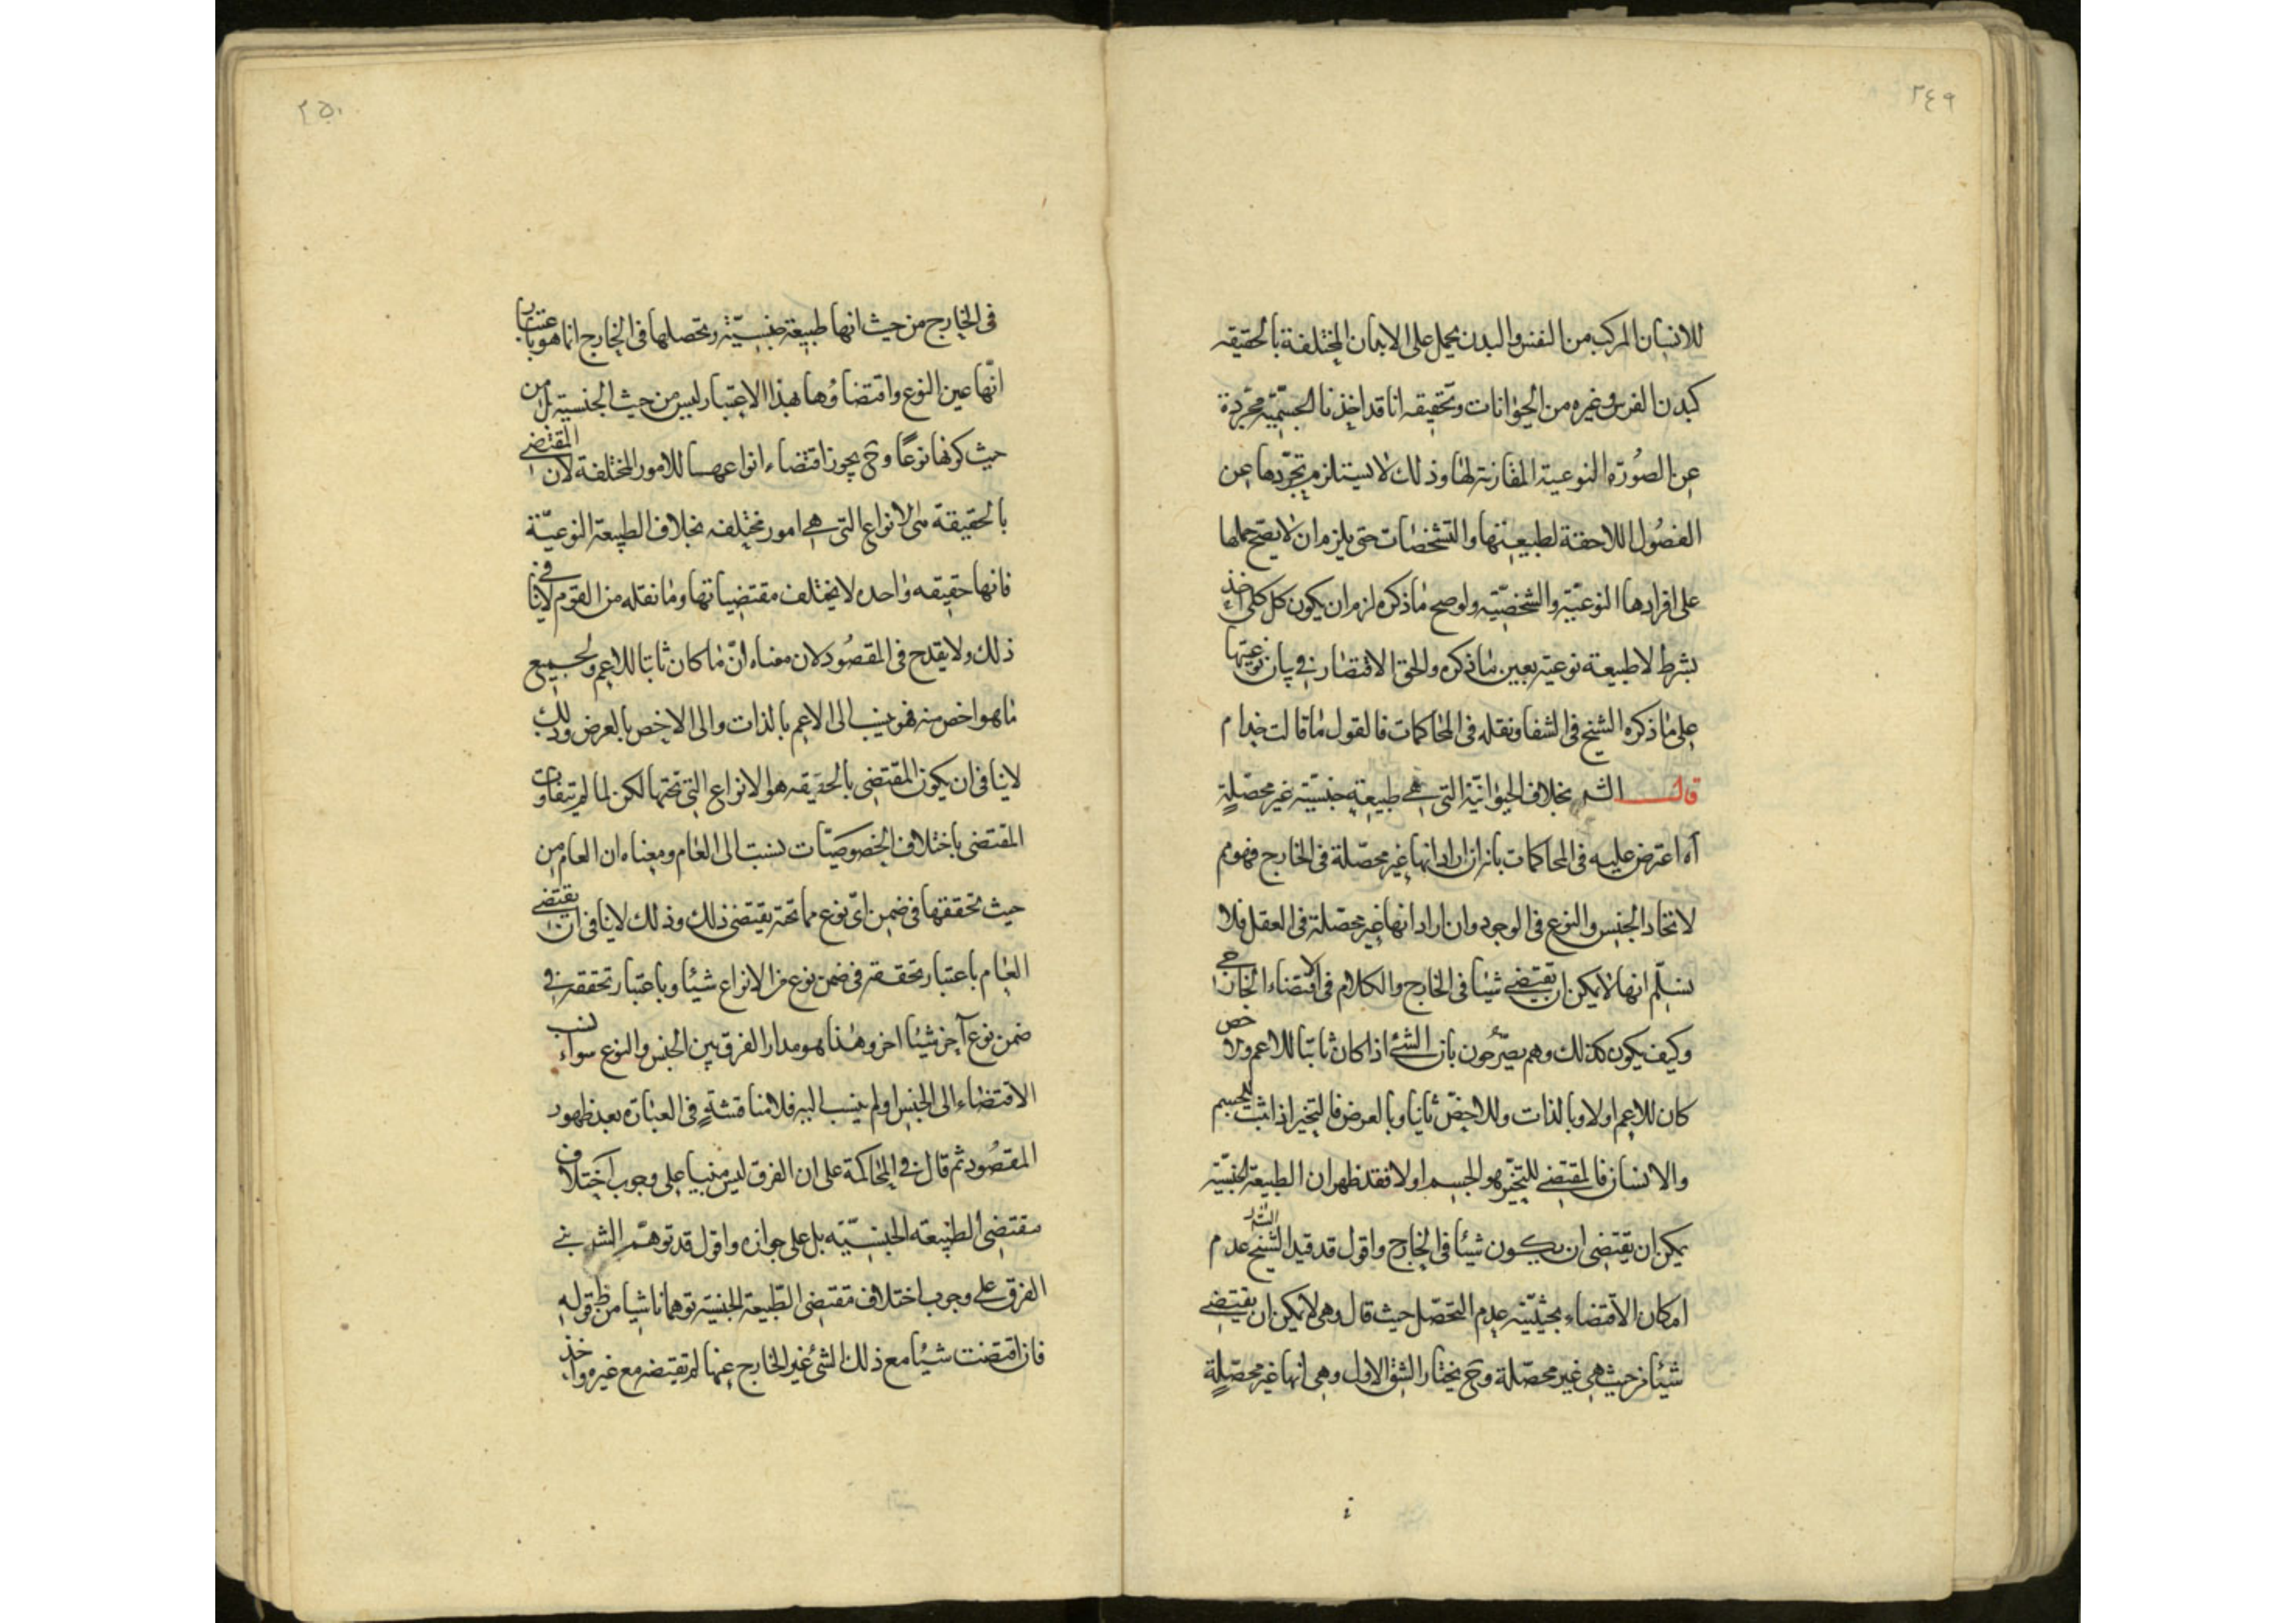 ٢٤٩
للانسان المركب من النفس والبدن يحمل على الابدان المختلفة بالحقيقه
كبدن الفرس وغيره من الحيوانات وتحقيقه انا قد اخذنا الجسميّة مجردة
عن الصورة النوعية المقارنة لها وذلك لا يستلزم تجرّدها عن
الفصول اللاحقة لطبيعتها والتشخصات حتى يلزم ان لا يصح حملها
على افرادها النوعيّة والشخصيّة ولو صح ما ذكره لزم ان يكون كل كلي اخذ
بشرط لا طبيعة نوعية بعين ما ذكره والحق الاقتصار في بيان نوعيتها
على ما ذكره الشيخ في الشفا ونقله في المحاكمات فالقول ما قالت حذام
قال الشر بخلاف الحيوانيّة التي هي طبيعة جنسيّة غير محصّلة
آه اعترض عليه في المحاكمات بانه ان اراد انها غير محصّلة في الخارج فهو مم
لاتحاد الجنس والنوع في الوجود وان اراد انها غير محصّلة في العقل فلا
نسلّم انها لا يمكن ان تقتضي شيئا في الخارج والكلام في الاقتضاء الخارجي
وكيف يكون كذلك وهم يصرّحون بان الشئ اذا كان ثابتا للاعم والاخص
كان للاعم اولا وبالذات وللاخصّ ثانيا وبالعرض فالتحيز اذا ثبت للجسم
والانسان فالمقتضي للتحيّز هو الجسم اولا فقد ظهر ان الطبيعة الجنسيّة
يمكن ان يقتضي ان يكون شيئا في الخارج واقول قد قيد الشيخ الشر عدم
امكان الاقتضاء بحيثيّة عدم التحصّل حيث قال وهي لا يمكن ان يقتضي
شيئا من حيث هي غير محصّلة وح يختار الشق الاول وهي انها غير محصّلة
٢٥٠
في الخارج من حيث انها طبيعة جنسيّة وتحصلها في الخارج انما هو باعتبار
انّها عين النوع واقتضاؤها بهذا الاعتبار ليس من حيث الجنسية بل من
حيث كونها نوعًا وح يجوز اقتضاء انواعها للامور المختلفة لان المقتضي
بالحقيقة هى الانواع التى هي امور مختلفه بخلاف الطبيعة النوعيّة
فانها حقيقه واحده لا يختلف مقتضياتها وما نقله من القوم لا ينافي
ذلك ولا يقدح في المقصود لان معناه انّ ما كان ثابتا للاعم ولجميع
ما هو اخص منه فهو ينسب الى الاعم بالذات والى الاخص بالعرض وذلك
لا ينافي ان يكون المقتضي بالحقيقه هو الانواع التي تحتها لكن لما لم يتفاوت
المقتضى باختلاف الخصوصيّات نسبت الى العام ومعناه ان العام من
حيث تحققها في ضمن اىّ نوع مما تحته يقتضي ذلك وذلك لا ينافى ان يقتضي
العام باعتبار تحققه في ضمن نوع من الانواع شيئا وباعتبار تحققه في
ضمن نوع آخر شيئا اخر وهذا هو مدار الفرق بين الجنس والنوع سواء نسب
الاقتضاء الى الجنس او لم ينسب اليه فلا مناقشة في العبارة بعد ظهور
المقصود ثم قال في المحاكمة على ان الفرق ليس مبنيا على وجوب اختلاف
مقتضى الطبيعة الجنسيّة بل على جوازه واقول قد توهّم الشر بنى
الفرق على وجوب اختلاف مقتضى الطّبيعة الجنسيّة توهما ناشيا من ظ قوله
فان اقتضت شيئا مع ذلك الشئ غير الخارج عنها لم تقتضه مع غيره واخذ